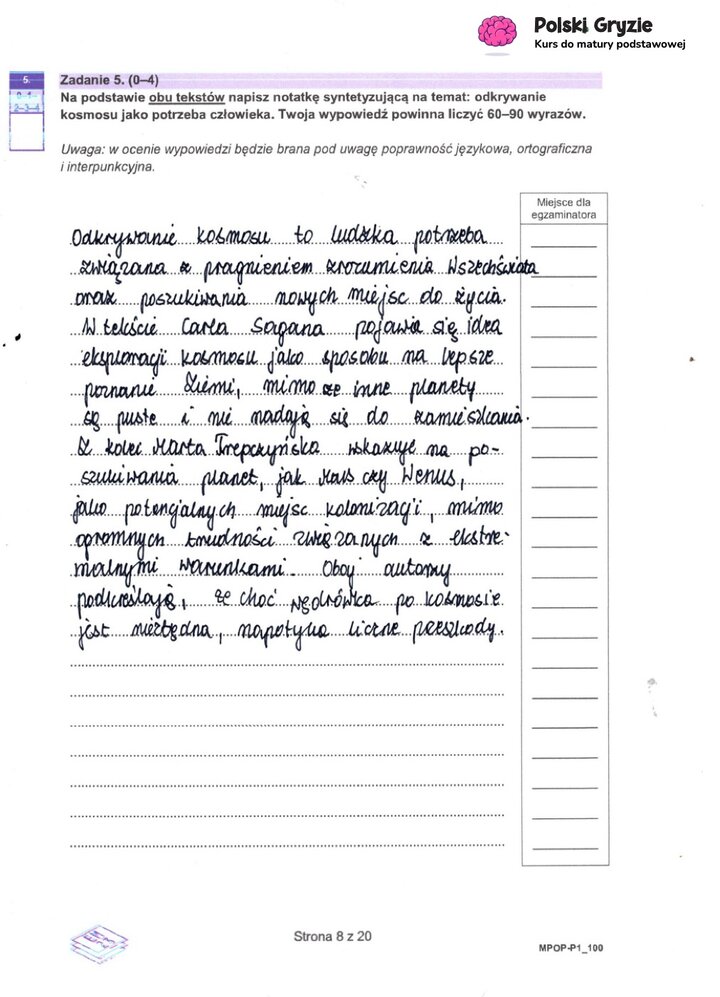 Polski Gryzie
Kurs do matury podstawowej
5.
0–1–
2–3–4
Zadanie 5. (0–4)
Na podstawie obu tekstów napisz notatkę syntetyzującą na temat: odkrywanie
kosmosu jako potrzeba człowieka. Twoja wypowiedź powinna liczyć 60–90 wyrazów.
Uwaga: w ocenie wypowiedzi będzie brana pod uwagę poprawność językowa, ortograficzna
i interpunkcyjna.
Miejsce dla
egzaminatora
Odkrywanie kosmosu to ludzka potrzeba
związana z pragnieniem zrozumienia Wszechświata
oraz poszukiwania nowych miejsc do życia.
W tekście Carla Sagana pojawia się idea
eksploracji kosmosu jako sposobu na lepsze
poznanie Ziemi, mimo że inne planety
są puste i nie nadają się do zamieszkania.
Z kolei Marta Trepczyńska wskazuje na po-
szukiwania planet, jak Mars czy Wenus,
jako potencjalnych miejsc kolonizacji, mimo
ogromnych trudności związanych z ekstre-
malnymi warunkami. Oboj autorzy
podkreślają, że choć wędrówka po kosmosie
jest niezbędna, napotyka liczne przeszkody.
Strona 8 z 20
MPOP-P1_100